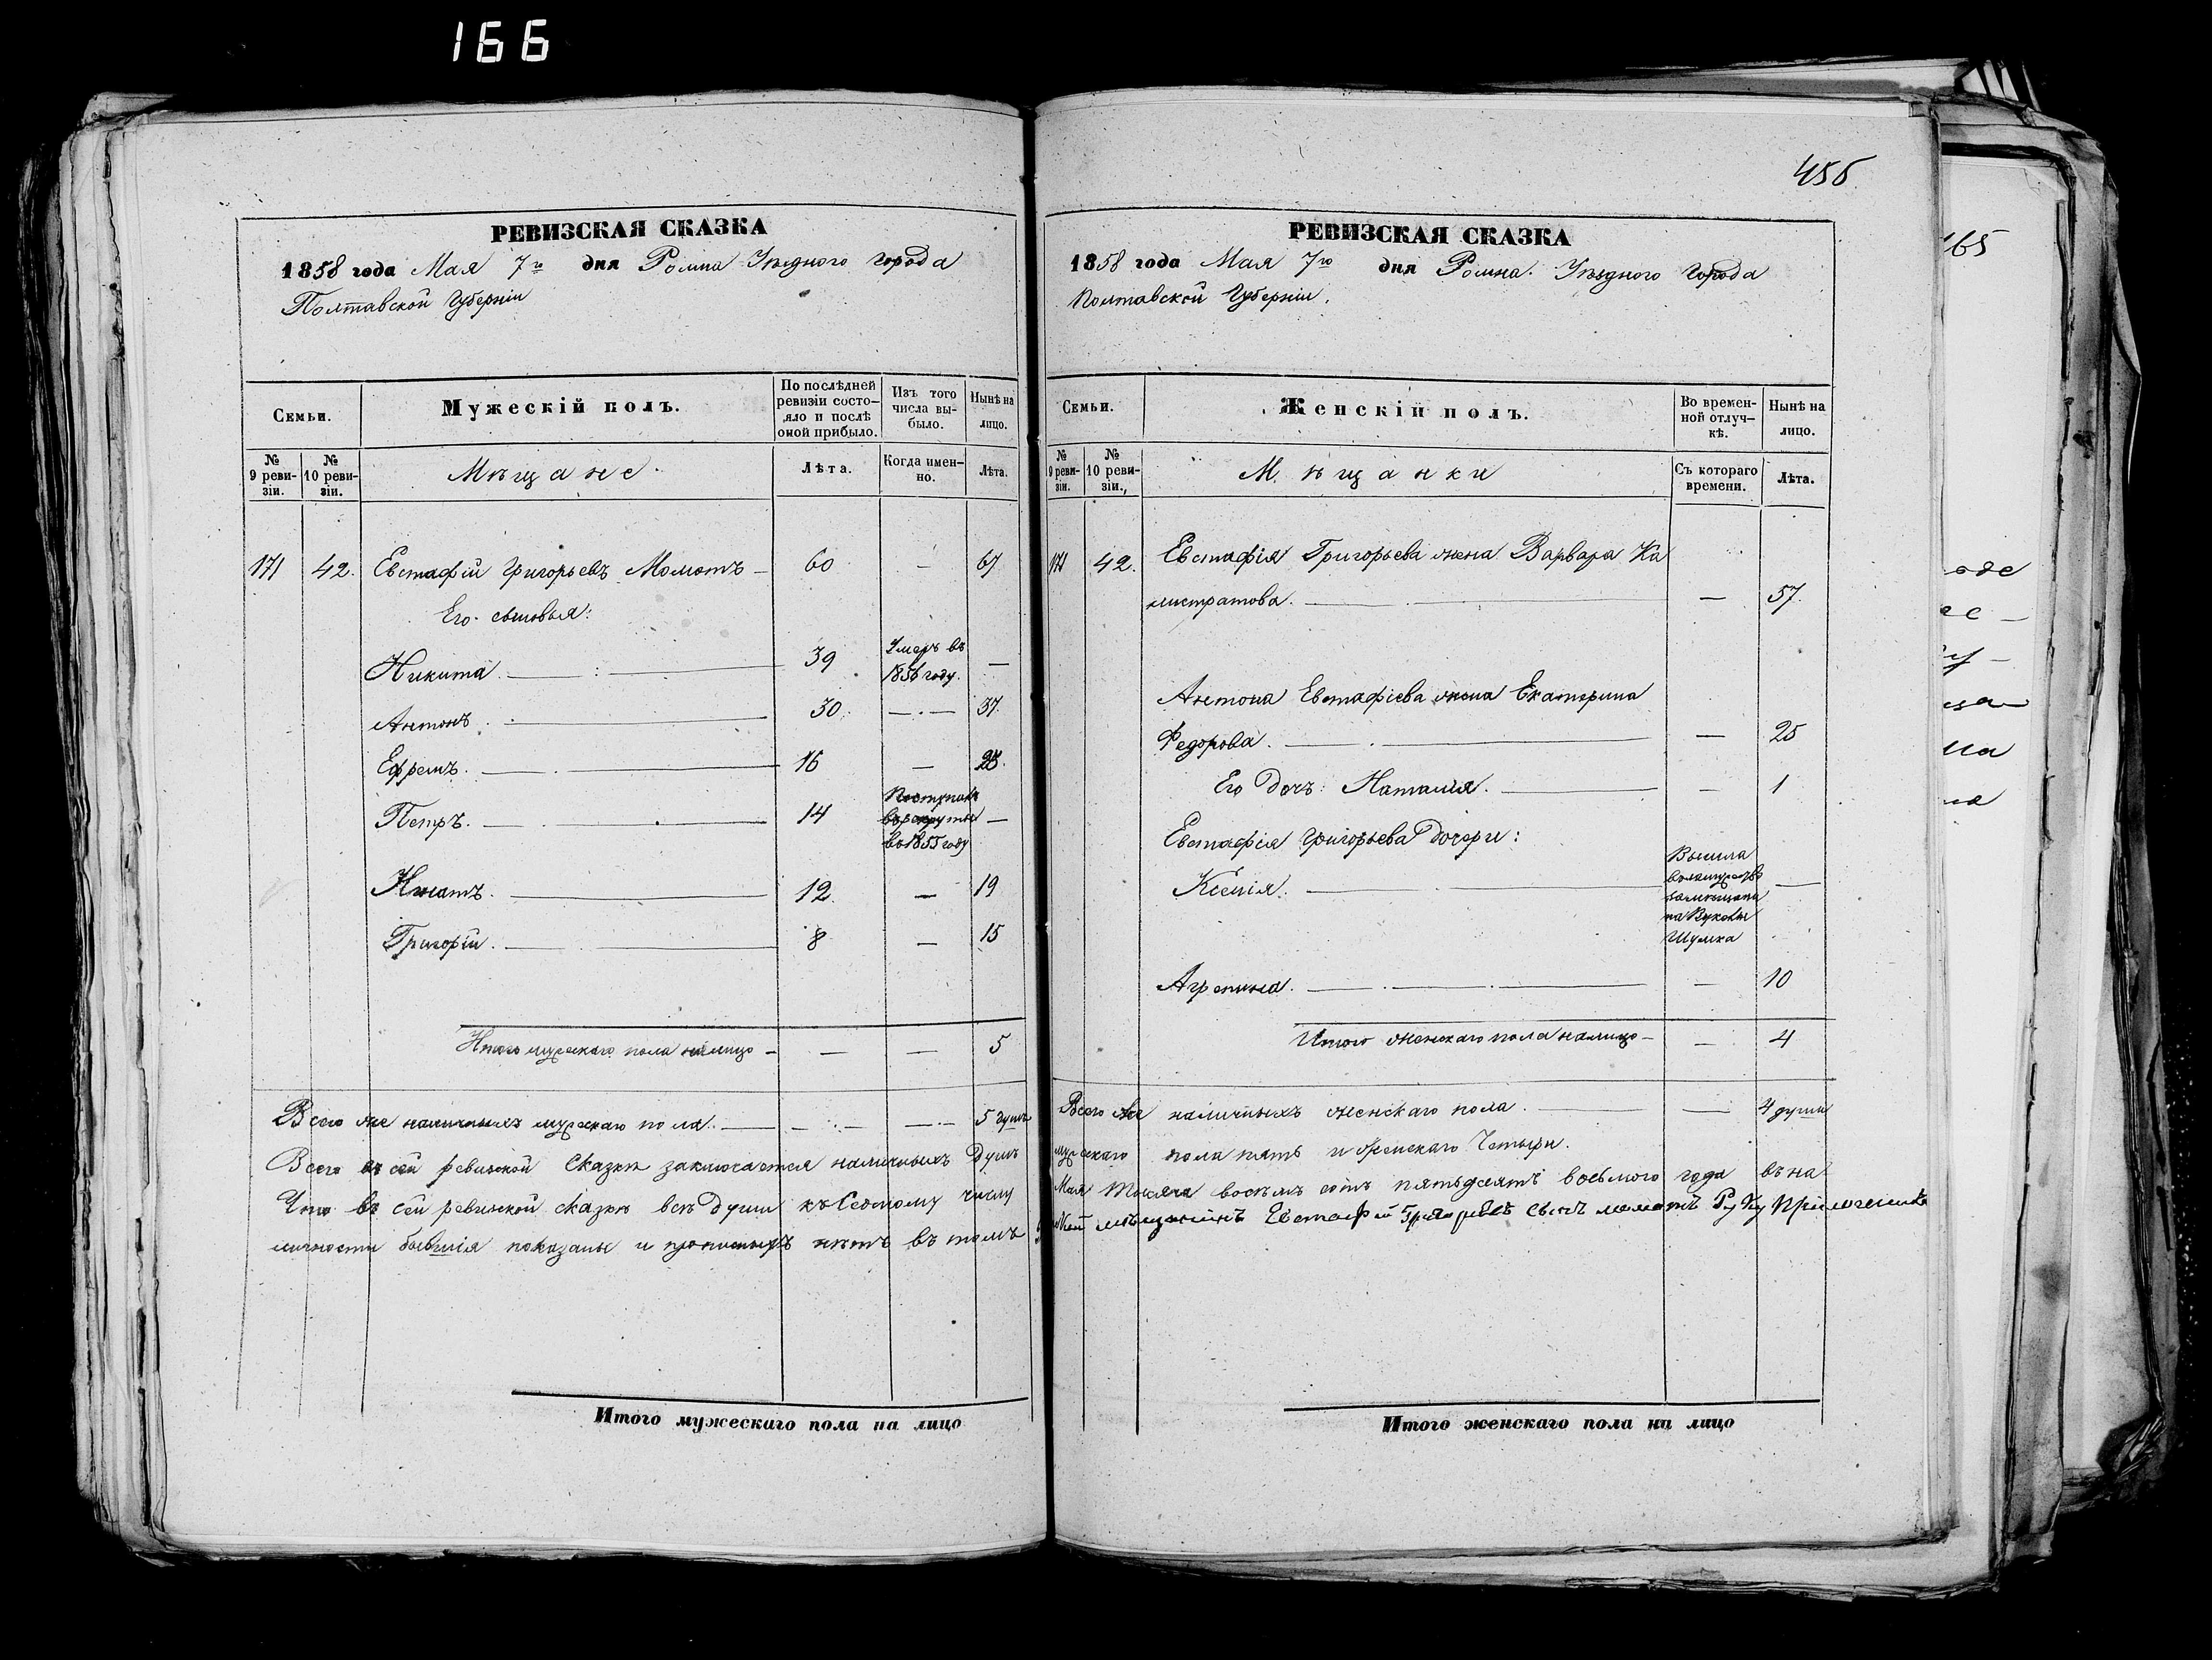 166
РЕВИЗСКАЯ СКАЗКА
1858 года Мая 7го дня Ромна Уѣзднаго города
Полтавской Губерніи
Семьи.
Мужескій полъ.
По послѣдней ревизіи состояло и послѣ оной прибыло.
Изъ того числа выбыло.
Нынѣ на лицо.
№ 9 ревизіи.
№ 10 ревизіи.
Мѣщане
Лѣта.
Когда именно.
Лѣта.
171 42. Евстафій Григорьевъ Момотъ — 60 — 67
Его сыновья:
Никита. — 39 Умеръ въ 1856 году. —
Антонъ — 30. — 37.
Ефремъ. — 16 — 23.
Петръ. — 14 Поступилъ въ рекруты въ 1855 году —
Игнатъ. — 12. — 19
Григорій. — 8 — 15
Итого мужескаго пола налицо — — — 5
Всего же наличныхъ мужескаго пола. — — — 5 душъ
Всего въ сей ревизской сказкѣ заключается наличныхъ душъ
Что въ сей ревизской сказкѣ всѣ души къ Седьмому числу
личности бывшія показаны и прописныхъ нѣтъ въ томъ
Итого мужескаго пола на лицо
456
РЕВИЗСКАЯ СКАЗКА
1858 года Мая 7го дня Ромна Уѣзднаго Города
Полтавской Губерніи.
Семьи.
Женскій полъ.
Во временной отлучкѣ.
Нынѣ на лицо.
№ 9 ревизіи.
№ 10 ревизіи.
Мѣщанки
Съ котораго времени.
Лѣта.
171 42. Евстафія Григорьева жена Варвара Ка
листратова. — — 57.
Антона Евстафіева жена Екатерина
Федорова. — — 25
Его дочь: Наталія. — — 1
Евстафія Григорьева дочери:
Ксенія. — Вышла
Шумка
Агрепина. — — 10
Итого женскаго пола налицо — — 4
Всего же наличныхъ женскаго пола. — — 4 души
мужескаго пола пять и женскаго Четыри.
Мая тысяча восемь сотъ пятьдесятъ восьмого года въ на
мѣщанинъ Евстафій Григорьевъ сынъ момотъ Руку Приложилъ
Итого женскаго пола на лицо
165